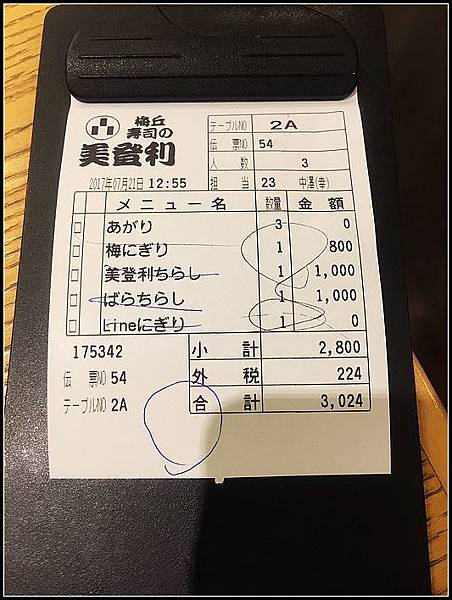 梅丘
寿司の
美登利
テーブルNO 2A
伝 票NO 54
人 数 3
2017年07月21日 12:55 担 当 23 中澤(幸)
メニュー名 数量 金 額
あがり 3 0
梅にぎり 1 800
美登利ちらし 1 1,000
ばらちらし 1 1,000
Lineにぎり 1 0
175342 小 計 2,800
伝 票NO 54 外 税 224
テーブルNO 2A 合 計 3,024